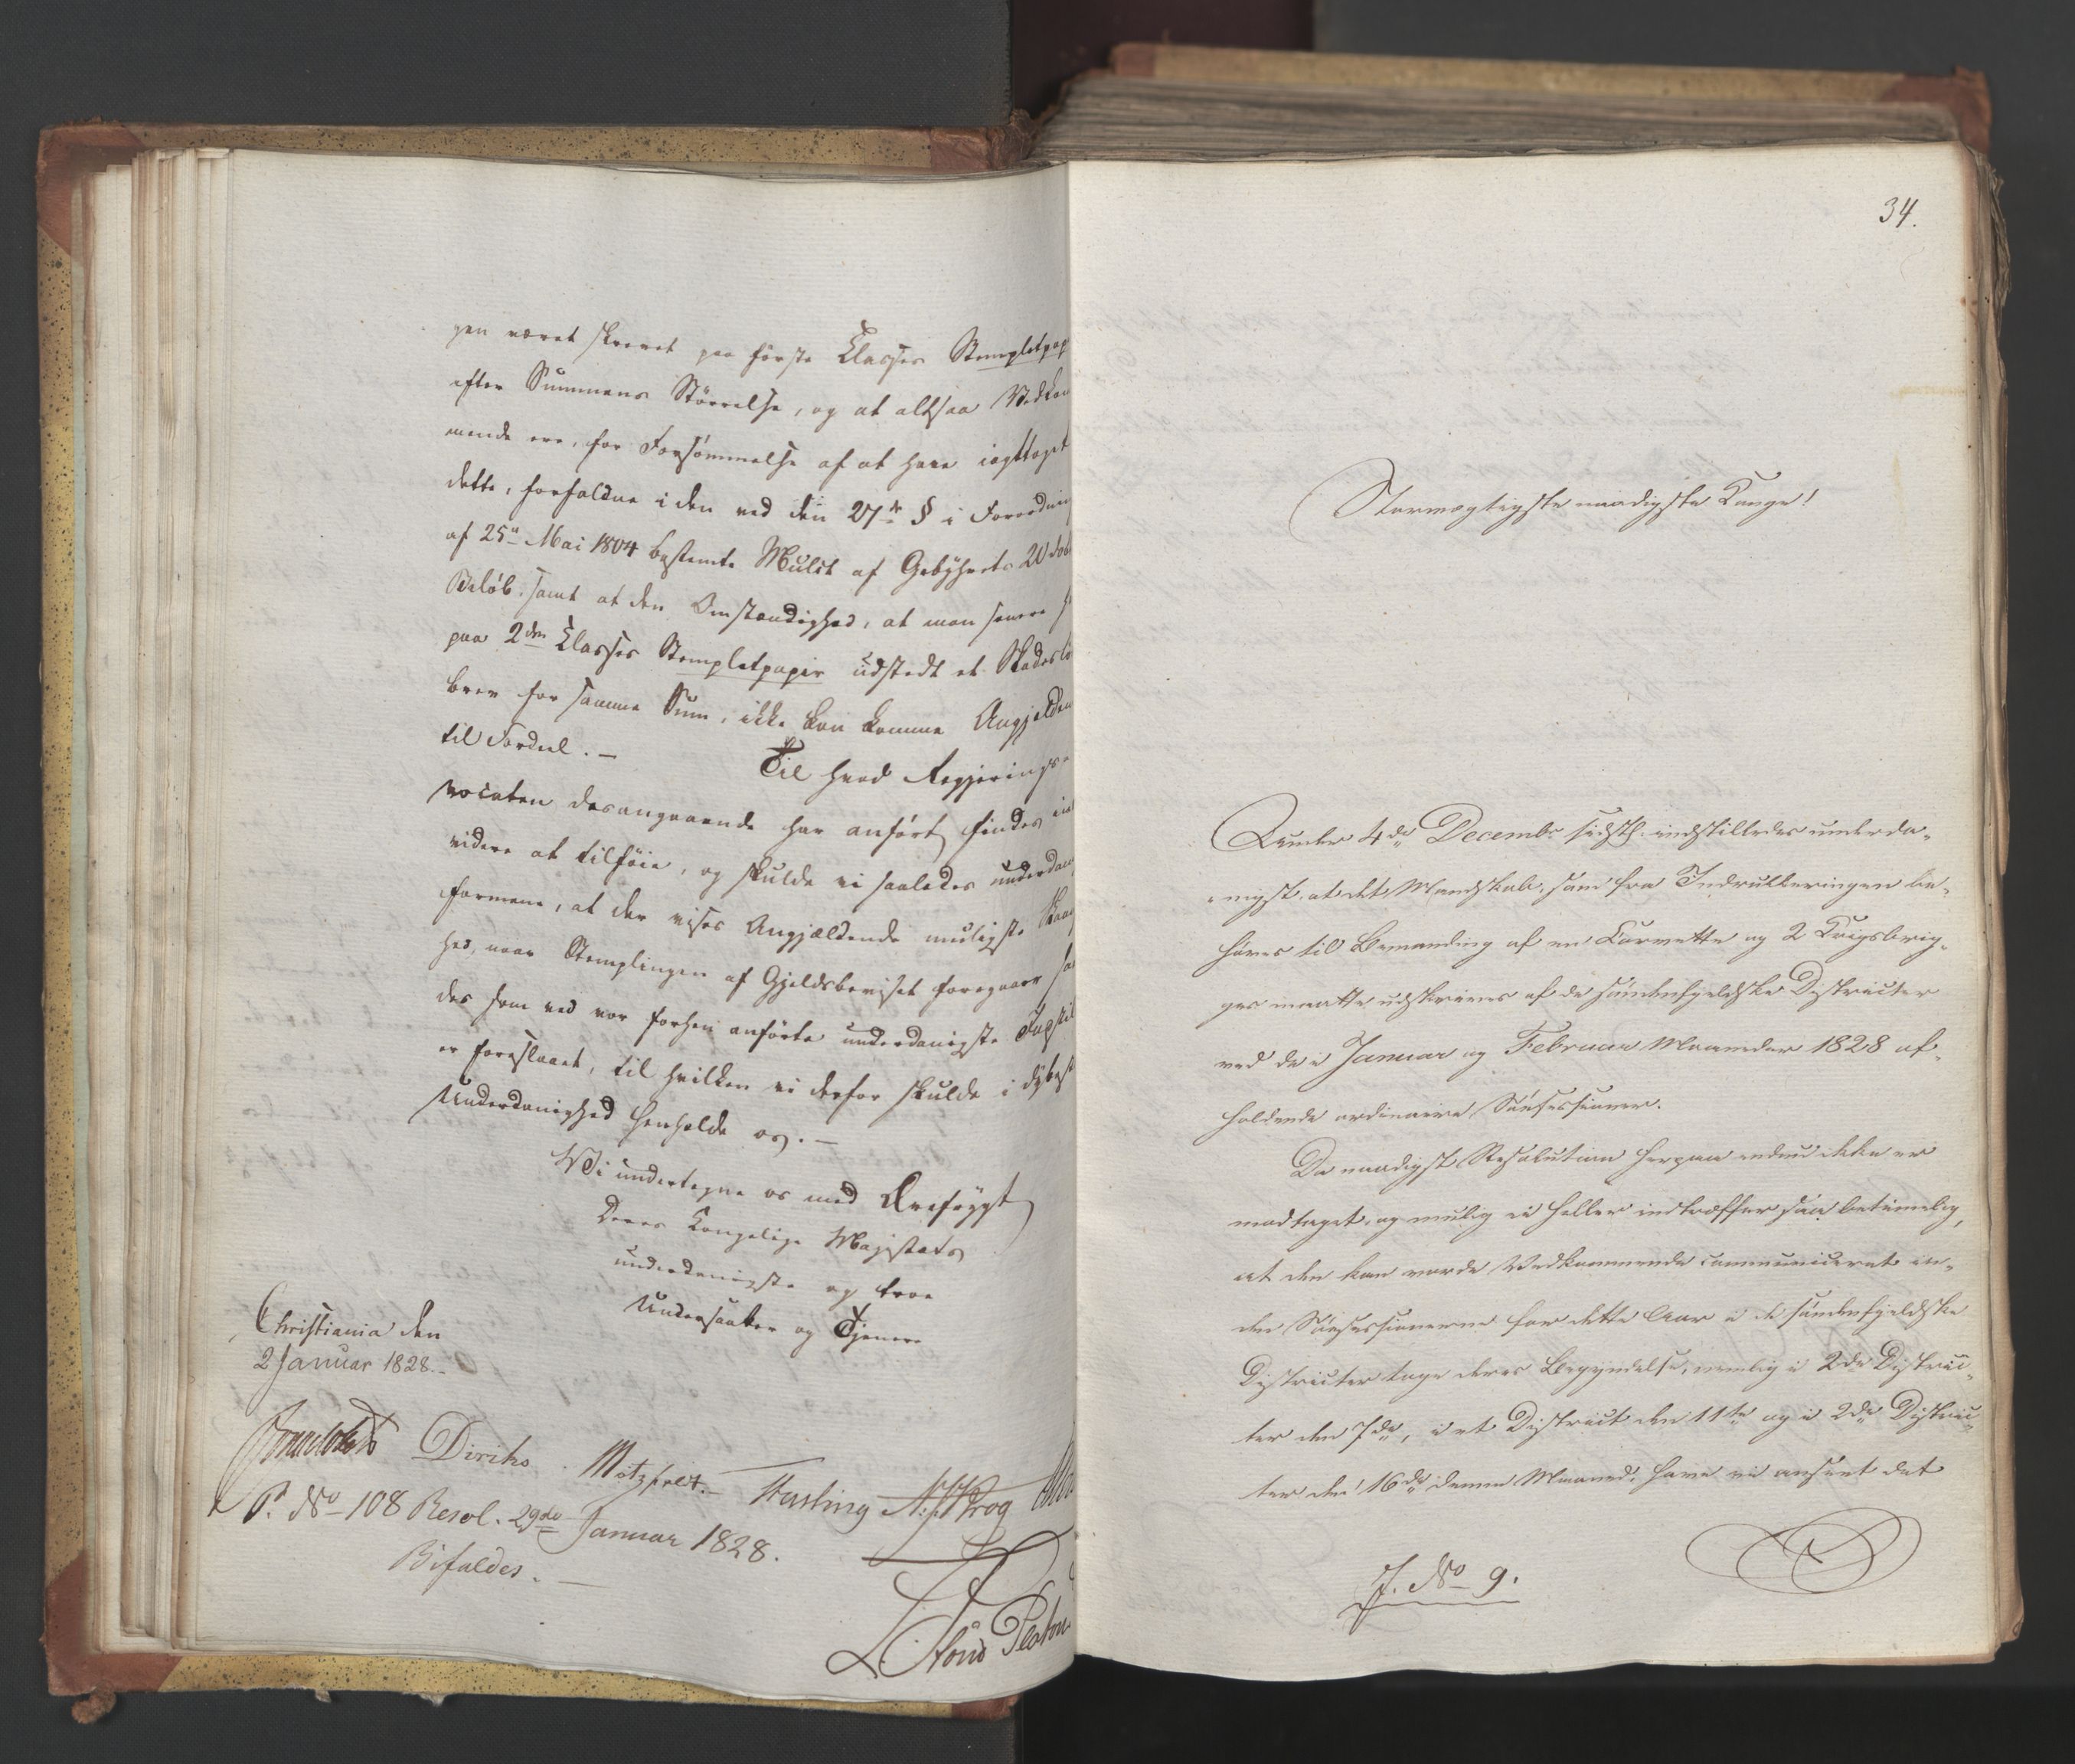 gen været skrevet paa første Classes Stempletpap
efter Summens Størrelse, og at altsaa Vedkom
mende ere, for Forsømmelse af at have iagttaget
dette, forfaldne i den ved den 27de § i Forordning
af 25de Mai 1804 bestemte Mulct af Gebyhrets 20 dob
Beløb, samt at den Omstændighed, at man senere h
paa 2den Classes Stempletpapir udstedt et Skadeslø
brev for samme Sum, ikke kan komme Angjelden
til Fordeel. —
Til hvad Regjerings
vocaten desangaaende har anført, findes in
videre at tilføie, og skulde vi saaledes underdan
formene, at der vises Angjældende muligste Skaan
hed, naar Stemplingen af Gjeldsbeviset foregaaer saa
des som ved vor forhen anførte underdanigste Indstil
er foreslaaet, til hvilken vi derfor skulde i dybest
Underdanighed henholde os. —
Vi undertegne os med Ærefrygt
Deres Kongelige Majestæts
underdanigste og troe
Undersaatter og Tjenere
Christiania den
2 Januar 1828.
Diriks Motzfeldt. Fasting Krog
P. No 108 Resol. 29de Januar 1828.
Bifaldes. —
L. v. Platou
34.
Stormægtigste naadigste Konge!
Under 4de Decembr sidstl. indstilledes underda-
nigst, at det Mandskab, som fra Indrulleringen be-
høves til Bemanding af en Corvette og 2 Krigsbrig-
ger maatte udskrives af de søndenfjeldske Districter
ved de i Januar og Februar Maaneder 1828 af-
holdende ordinaire Søesessioner.
Da naadigst Resolution herpaa endnu ikke er
modtaget, og mulig ei heller indtræffer saa betimelig,
at den kan vorde Vedkommende communiceret in-
den Søesessionerne for dette Aar i de søndenfjeldske
Districter tage deres Begyndelse, nemlig i 2de Distric-
ter den 7de, i et District den 11te og i 2de Distric-
ter den 16de denne Maaned, have vi anseet det
J. No 9.